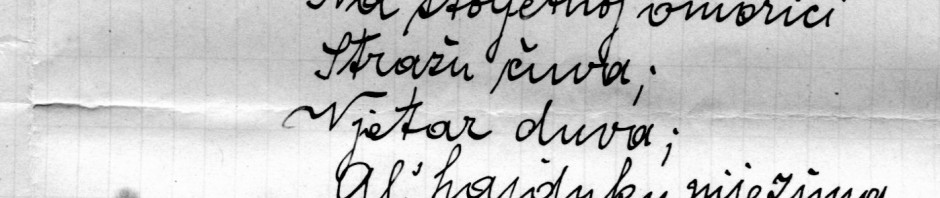 Na stoljetnoj omorici
Stražu čuva;
Vjetar duva;
Al' hajduku nije zima